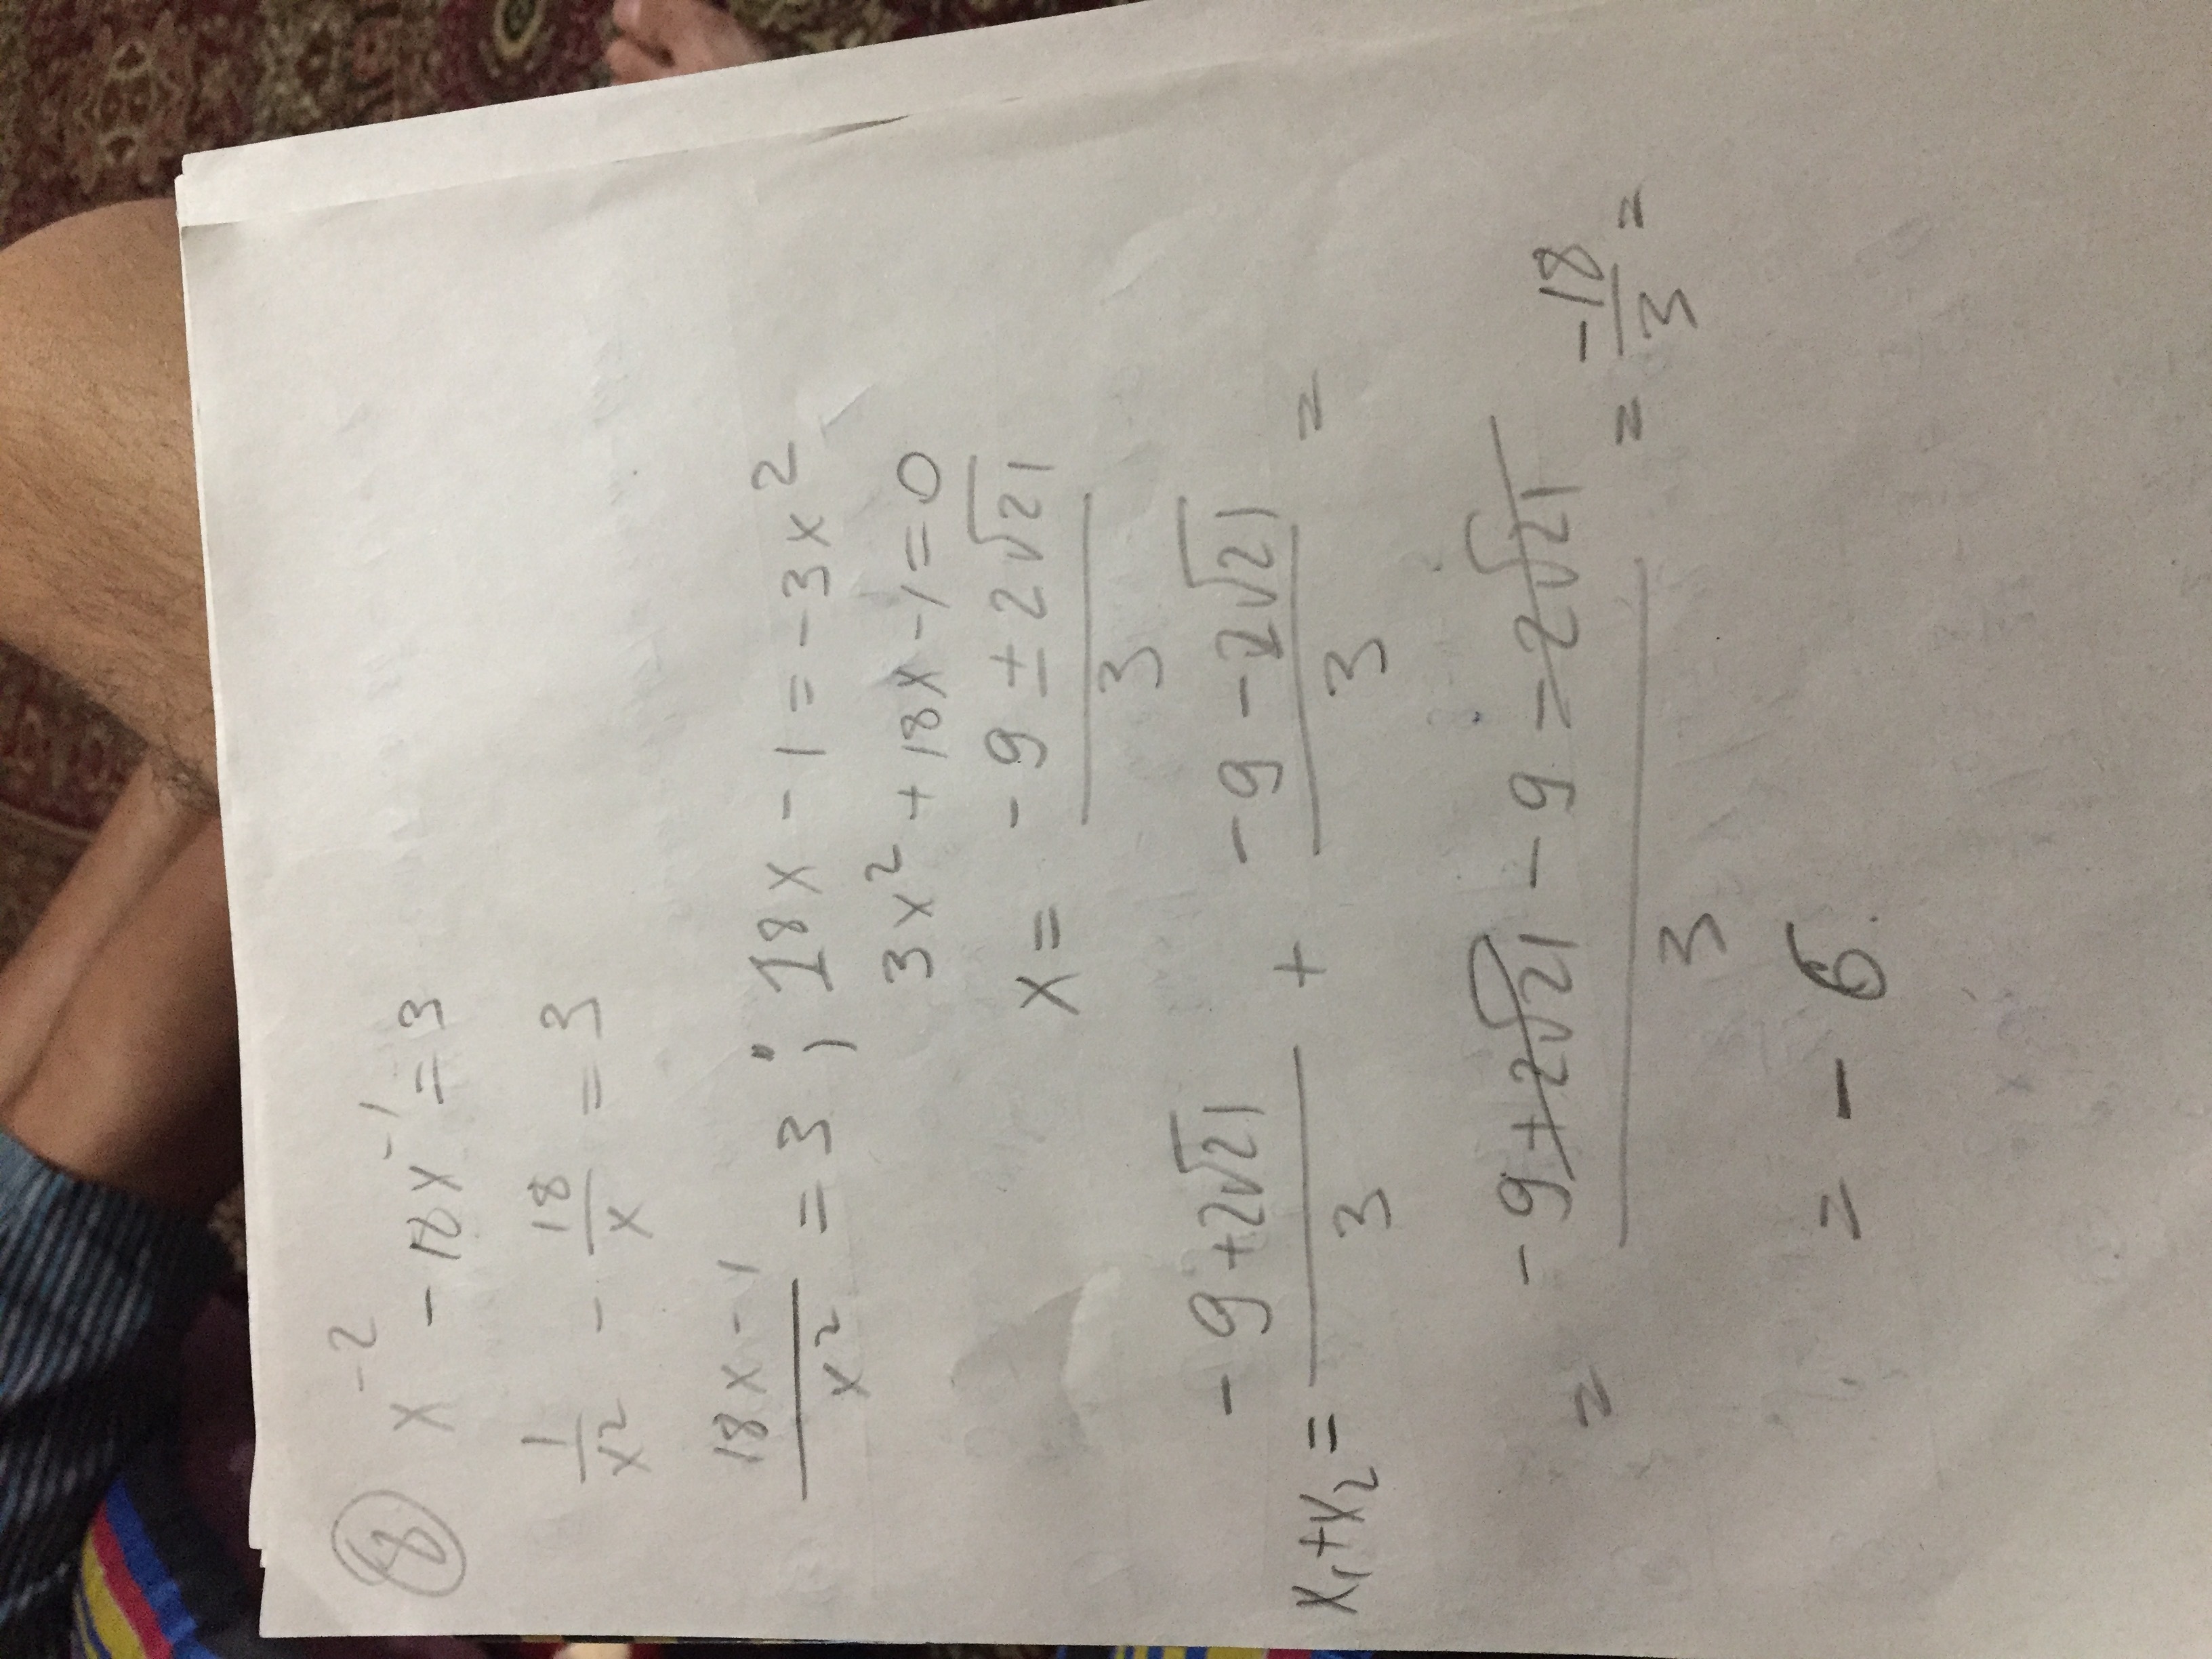 ⑧ x⁻² - 18x⁻¹ = 3
1/x² - 18/x = 3
(18x - 1)/x² = 3 ; 18x - 1 = -3x²
3x² + 18x - 1 = 0
x = (-9 ± 2√21)/3
x₁+x₂ = (-9+2√21)/3 + (-9-2√21)/3 =
= (-9+2√21 - 9 - 2√21)/3 = -18/3 =
= -6